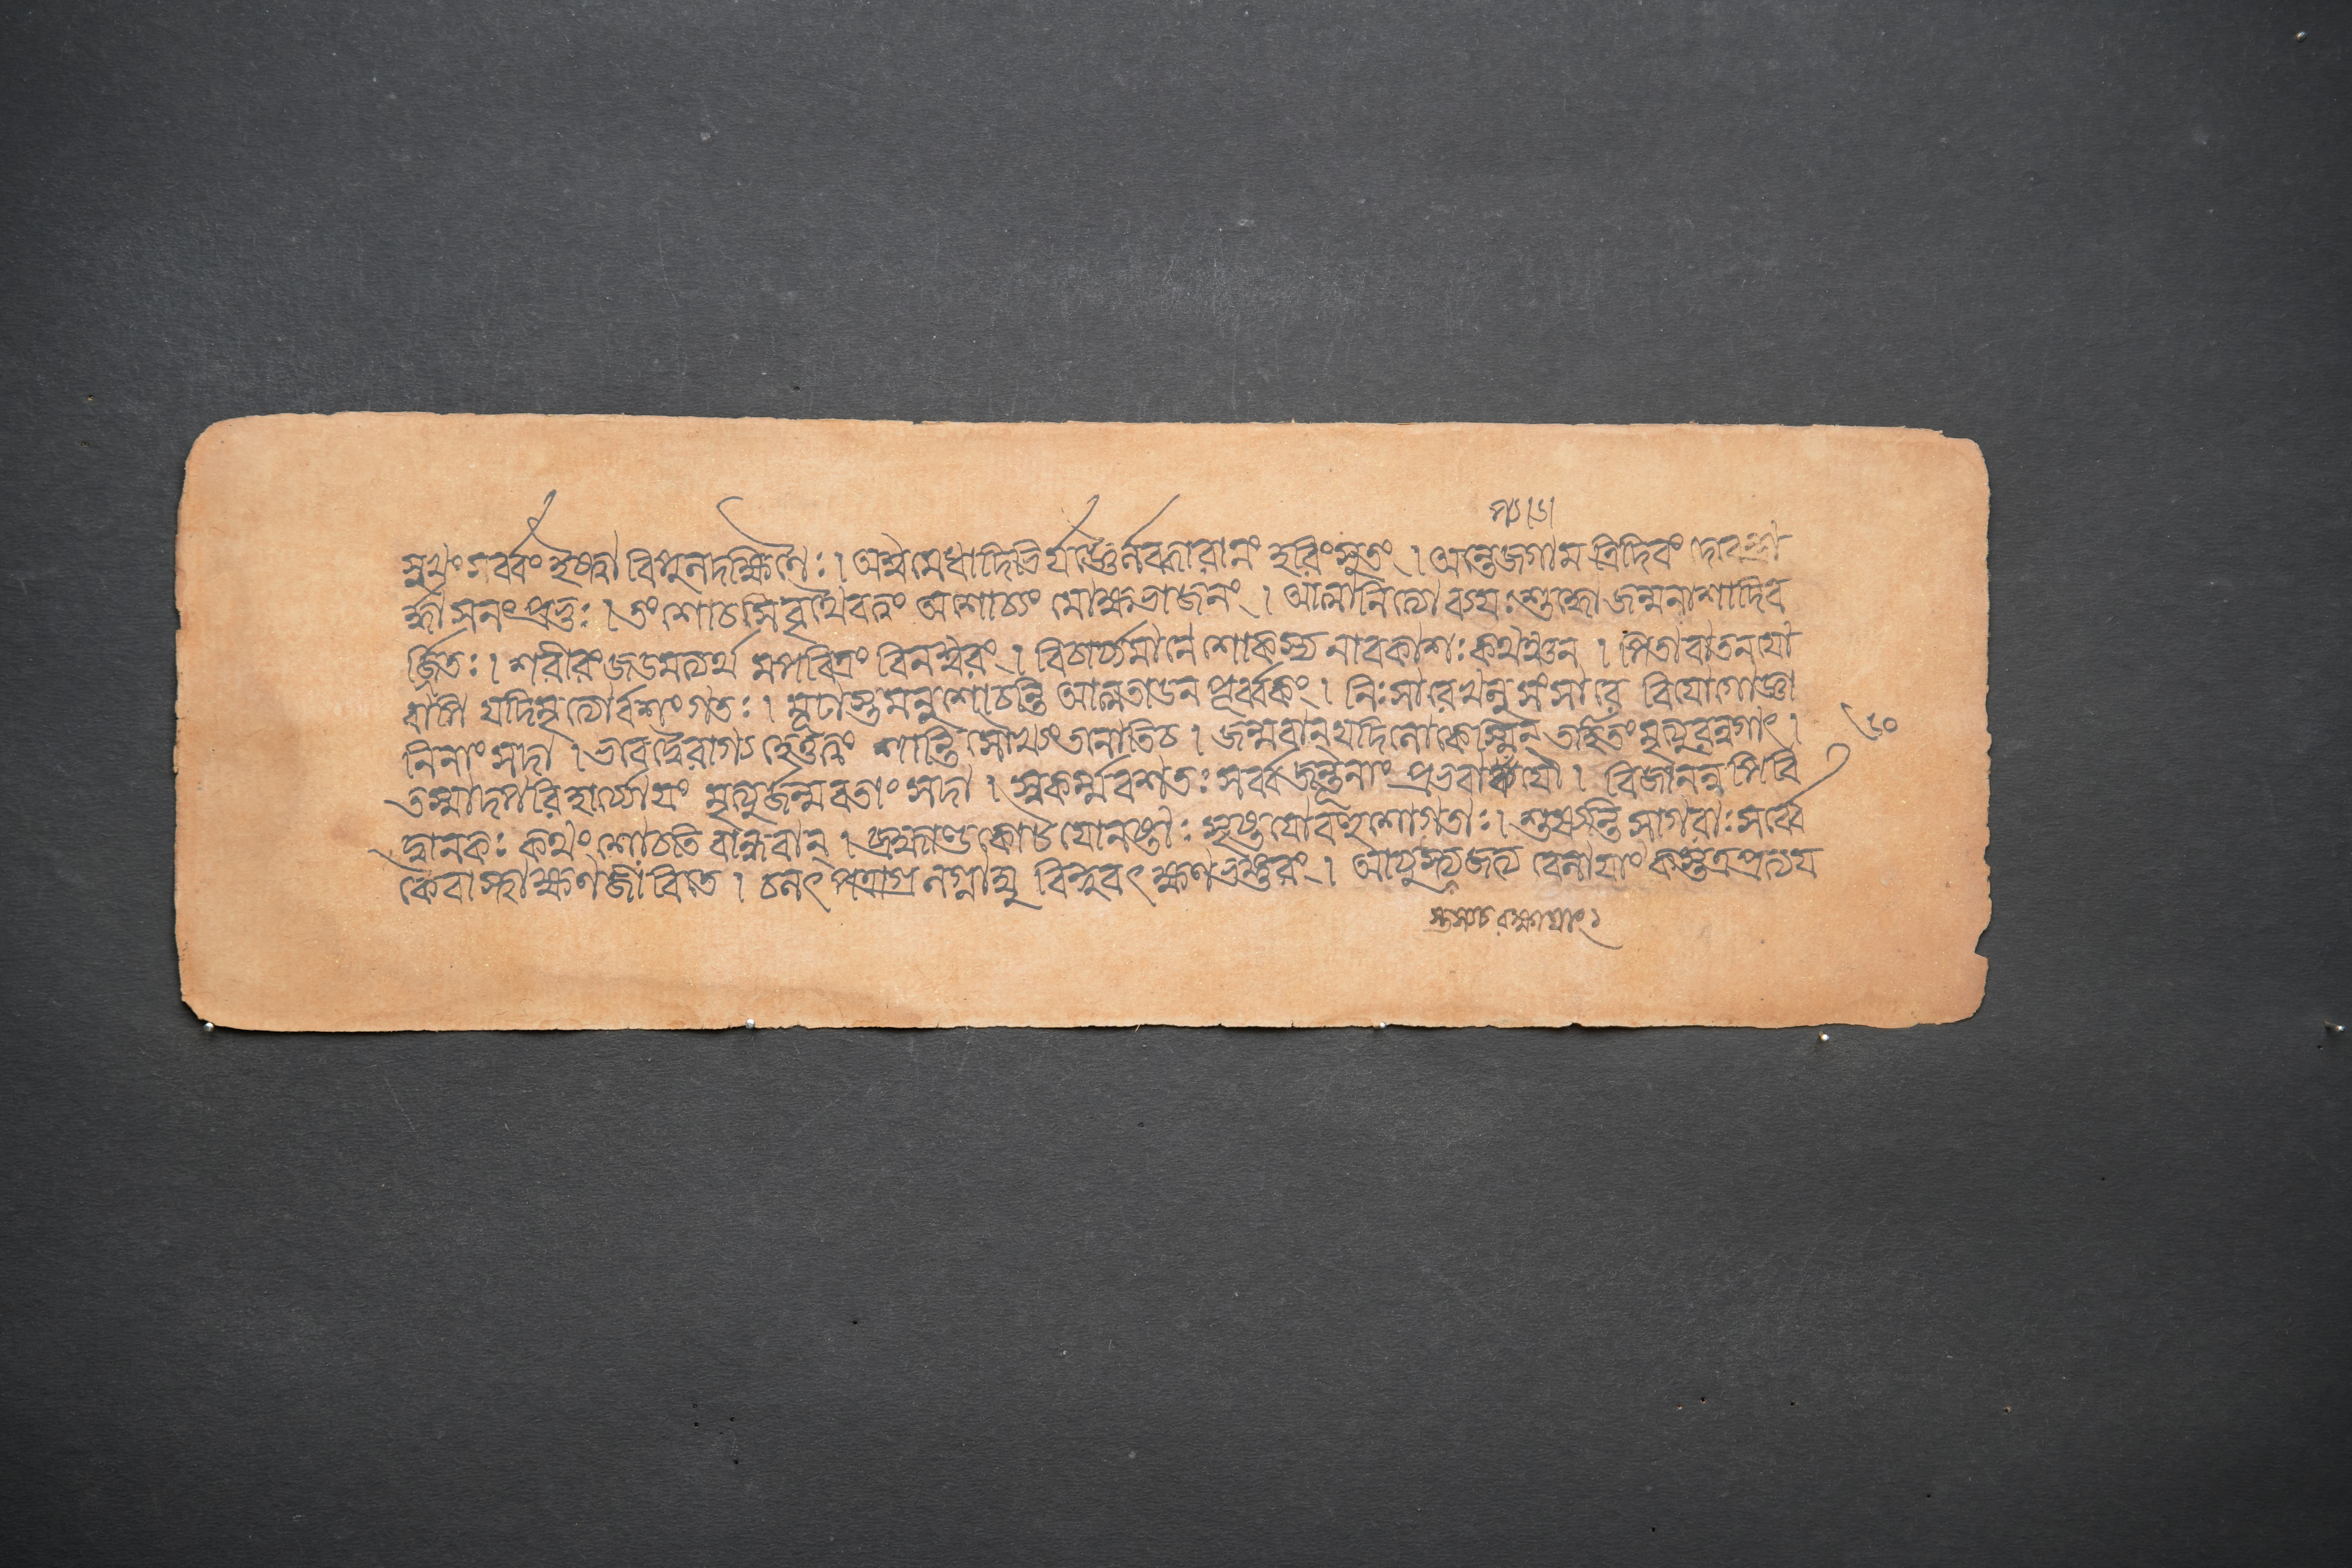 সুখং সর্ব্বং ইষ্ট্বা বিপুলদক্ষিণৈঃ । অশ্বমেধাদিভির্যজ্ঞৈর্লব্ধ্বা রামং হরিং সুতং । অন্তে জগাম ত্রিদিবং দেবেন্দ্রা
র্দ্ধাসনং প্রভুঃ । তং শোচসি বৃথৈব ত্বং অশোচ্যং মোক্ষভাজনং । আত্মা নিত্যোঽব্যয়ঃ শুদ্ধো জন্মনাশাদিব
র্জিতঃ । শরীরং জড়মত্যর্থমপবিত্রং বিনশ্বরং । বিচার্য্যমাণে শোকস্য নাবকাশঃ কথঞ্চন । পিতা বা তনয়ো
বাপি যদি মৃত্যোর্বশং গতঃ । মূঢাস্তমনুশোচন্তি আত্মতাডন পূর্ব্বকং । নিঃসারে খলু সংসারে বিযোগো জ্ঞা
নিনাং সদা । ভবেদ্বৈরাগ্যহেতুঃ শান্তিসৌখ্যং তনোতি চ । জন্মবান্ যদি লোকেঽস্মিন্ তর্হি তং মৃত্যুরন্বগাৎ ।
তস্মাদপরিহার্য্যোয়ং মৃত্যুর্জন্মবতাং সদা । স্বকর্ম্মবশতঃ সর্ব্বজন্তূনাং প্রভবাপ্যযৌ । বিজানন্নপ্যবি
দ্বান্ কঃ কথং শোচতি বান্ধবান্ । ব্রহ্মাণ্ডকোটযো নষ্টাঃ সৃষ্টযো বহুশো গতাঃ । শুষ্যন্তি সাগরাঃ সর্ব্বে
কৈবাস্থা ক্ষণজীবিতে । চলৎ পত্রাগ্র লগ্নাম্বু বিন্দুবৎ ক্ষণভঙ্গুরং । আযুস্ত্যজত্যবেলাযাং কস্তত্র প্রত্যয